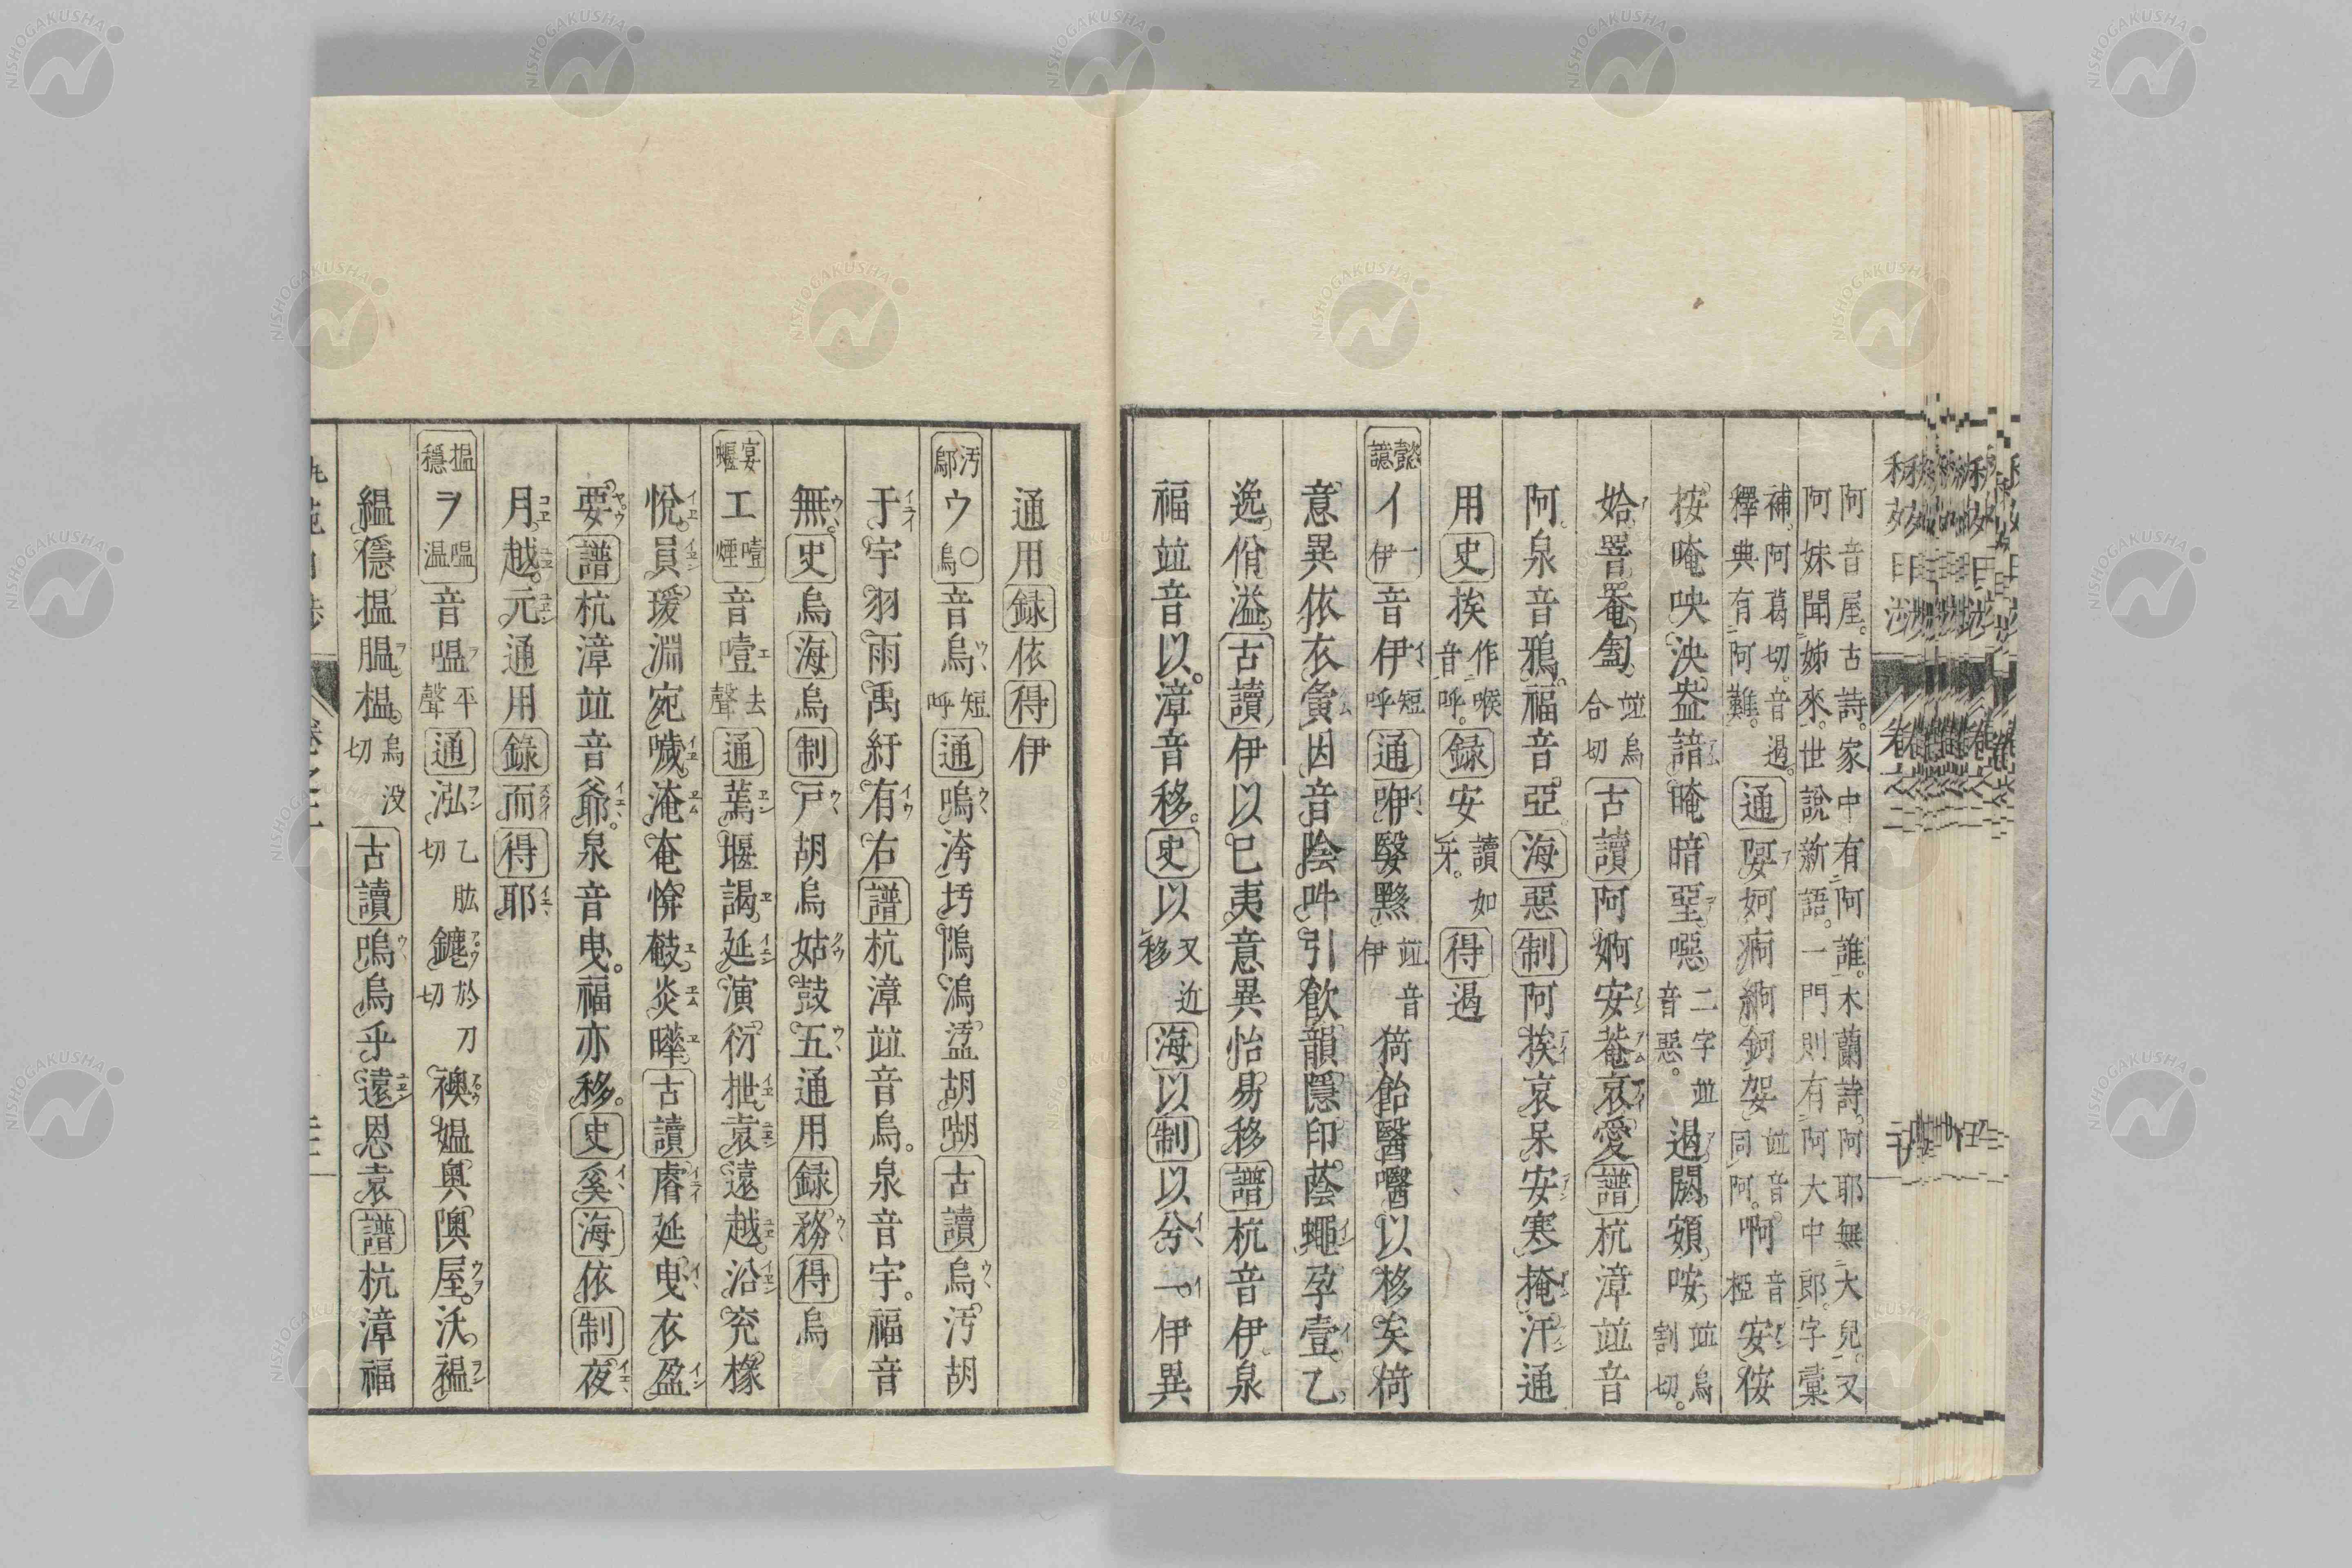 阿音屋。古詩。家中有阿誰。木蘭詩。阿耶無大兒。又
阿妹聞姊來。世說新語。一門則有阿大中郎。字彙
補。阿葛切。音遏。
釋典有阿難。
通㛿妸痾綗鈳娿
並音
同阿。
啊
音
椏
安侒
按唵咉泱盎諳晻暗堊噁
二字並
音惡。
遏閼頞咹
並烏
割切。
姶罯罨匎
並烏
合切
古讀阿婀安菴哀愛譜杭漳並音
阿。泉音鴉。福音亞海惡制阿挨哀呆安寒掩汗通
用史挨
作喉
音呼。
錄安
讀如
牙。
得遏
懿壹譩
イ
一伊
音伊
短呼
通咿毉黟
並音
伊
猗飴醫嚘以移矣㾨
意異依衣夤因音陰吽引飲韻隱印蔭蠅孕壹乙
逸佾溢。古讀伊以已夷意異怡易移譜杭音伊。泉
福並音以。漳音移。史以
又近
移
海以制以兮一伊異
通用録依得伊
汚鄔
ウ
〇烏
音烏
短呼
通嗚洿圬隖鴻盓胡瑚古讀烏。汚胡
于宇羽雨禹紆有右譜杭漳並音烏。泉音宇。福音
無。史烏海烏制戸胡烏姑鼓五通用録務得烏
宴蝘
エ
噎煙
音噎
去聲
通蔫堰謁延演衍抴袁遠越沿兖櫞
悅員瑗淵宛噦淹奄㛪敧炎曄古讀睿延曳衣盈
要譜杭漳並音爺。泉音曳。福亦移。史奚海依制夜
月。越。元通用錄而得耶
揾穩
ヲ
嗢温
音嗢
平聲
通泓
乙肱
切
鑣
於刀
切
襖媪奥隩屋沃褞
緼穩揾膃榲。
烏没
切
古讀嗚烏乎遠恩袁譜杭漳福